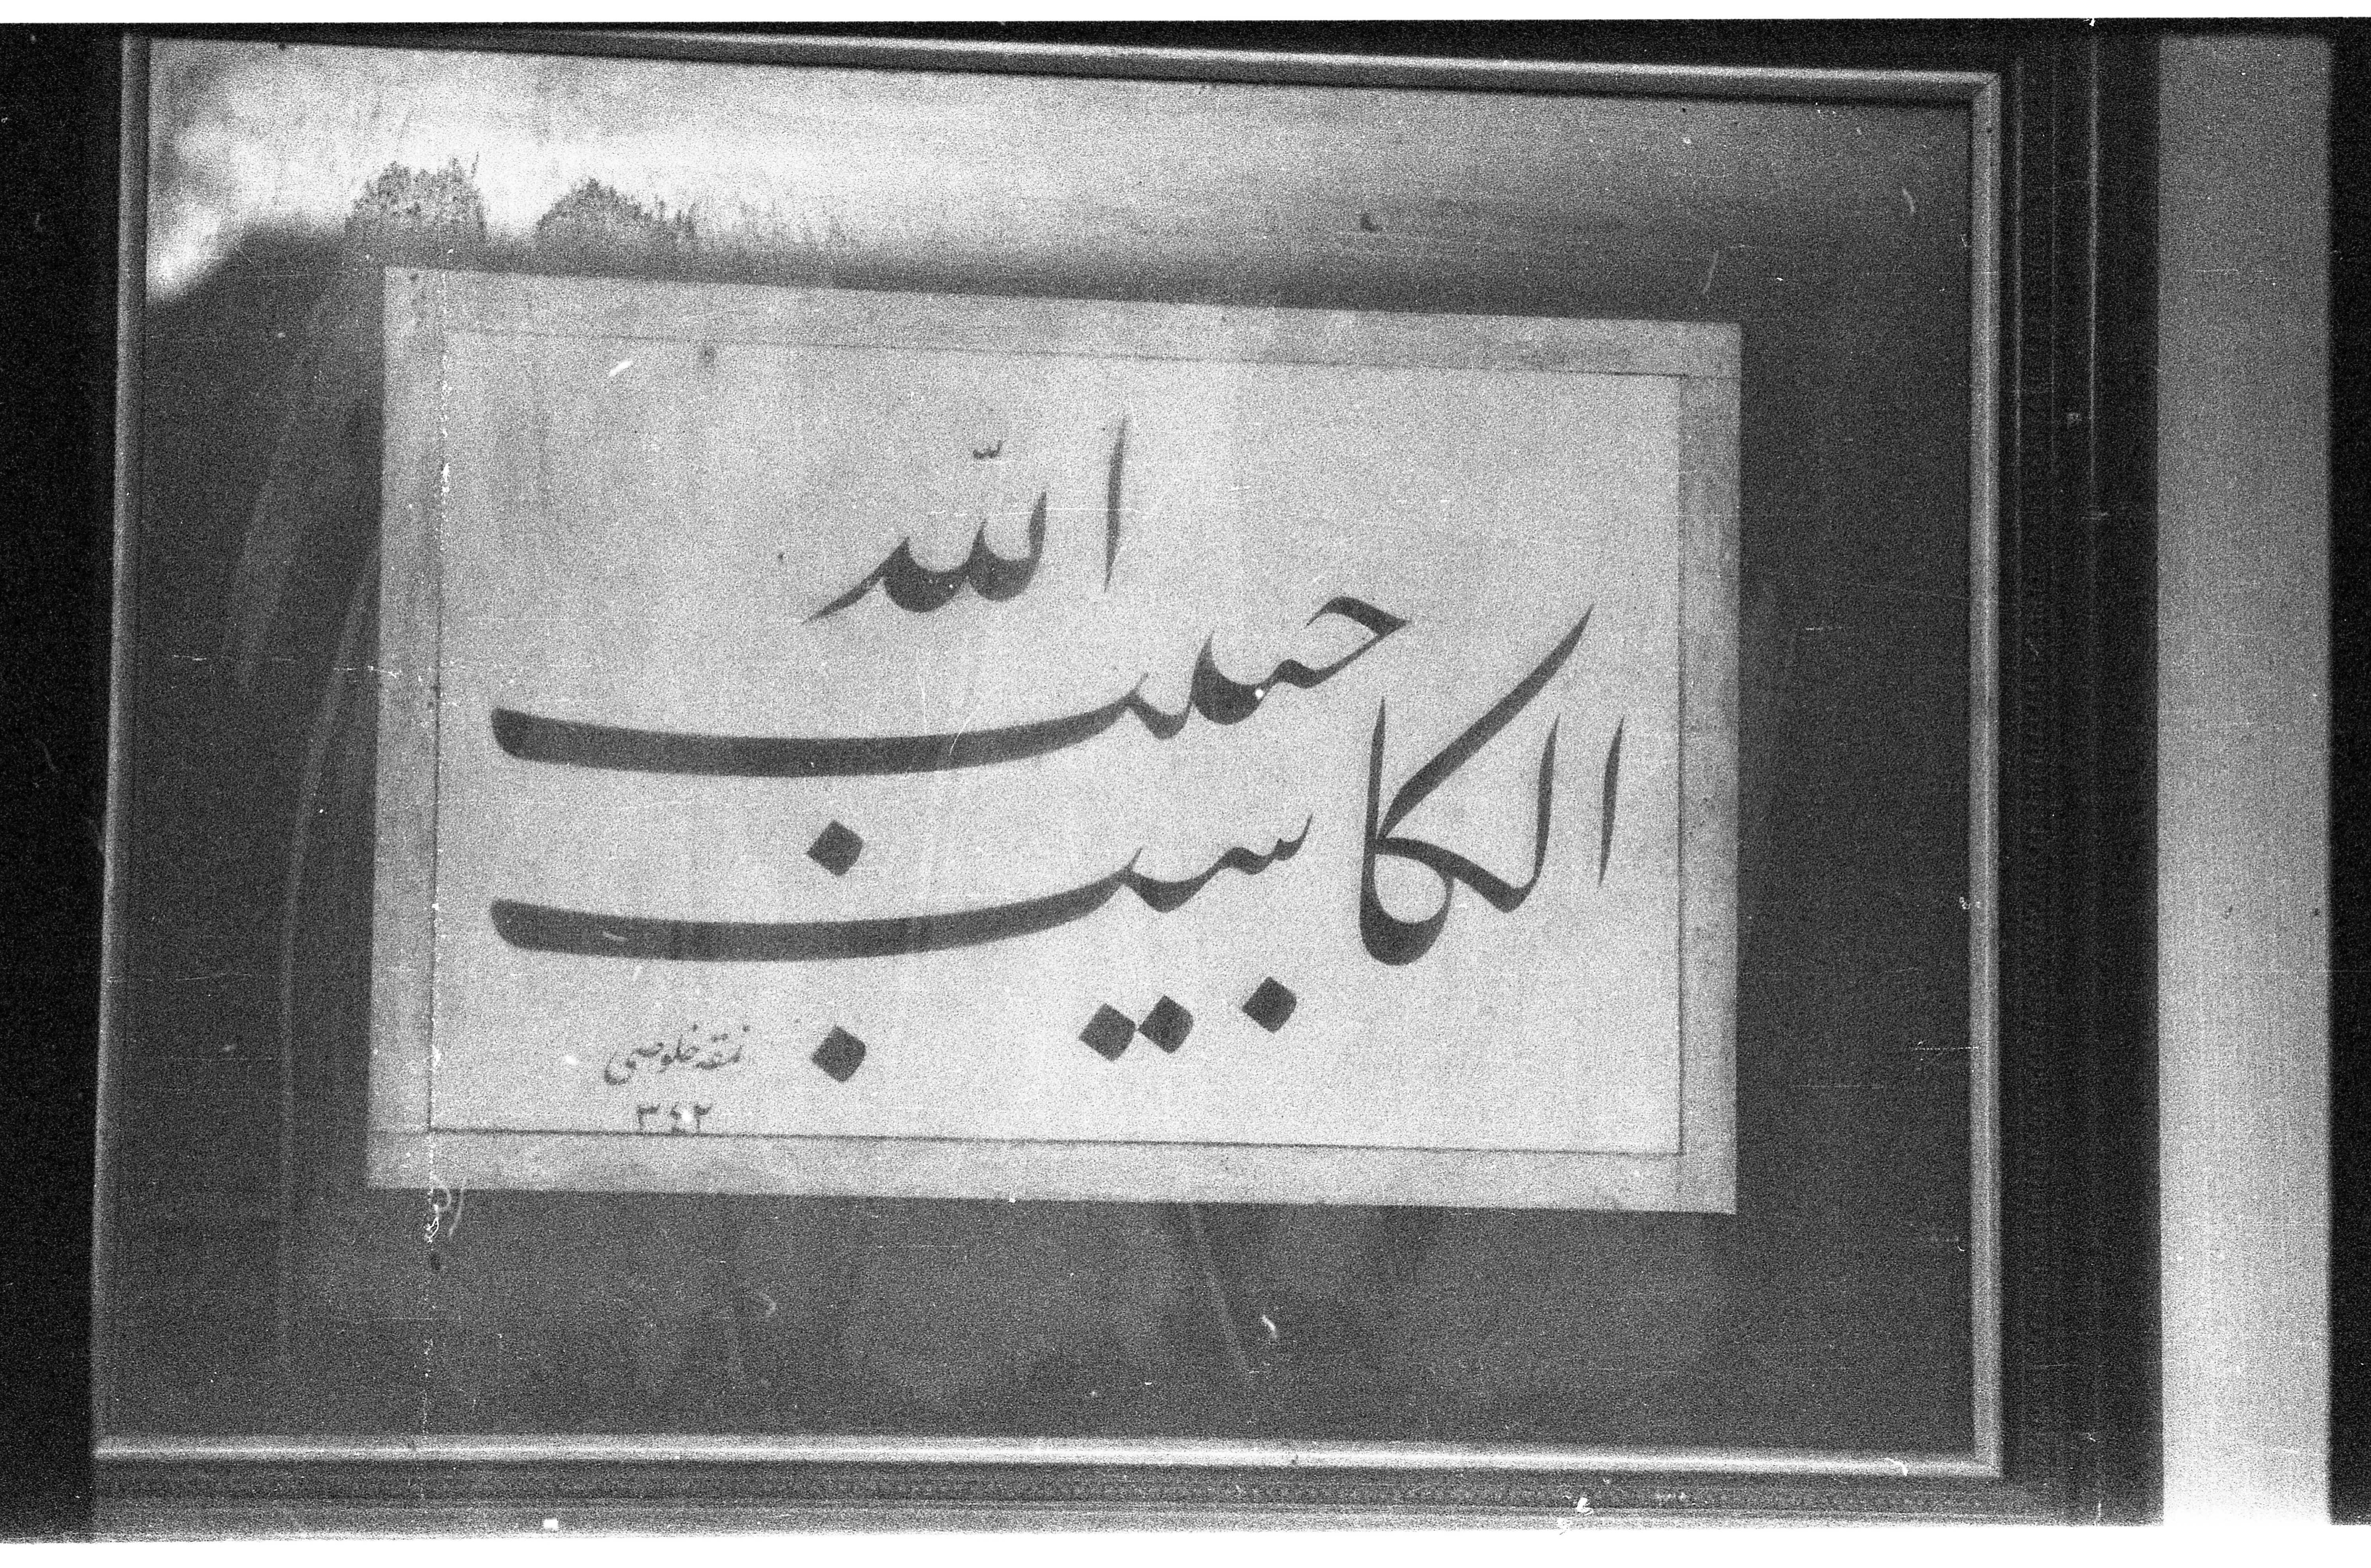 الكاسب
حبيب
الله
نمقه خلوصی
٣٤٢